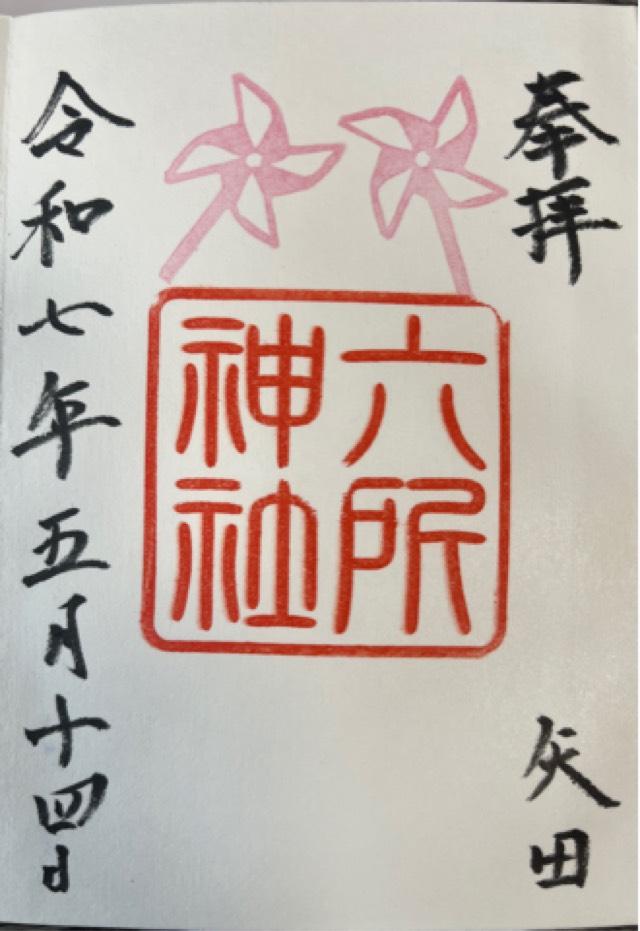 奉拝
矢田
六所
神社
令和七年五月十四日